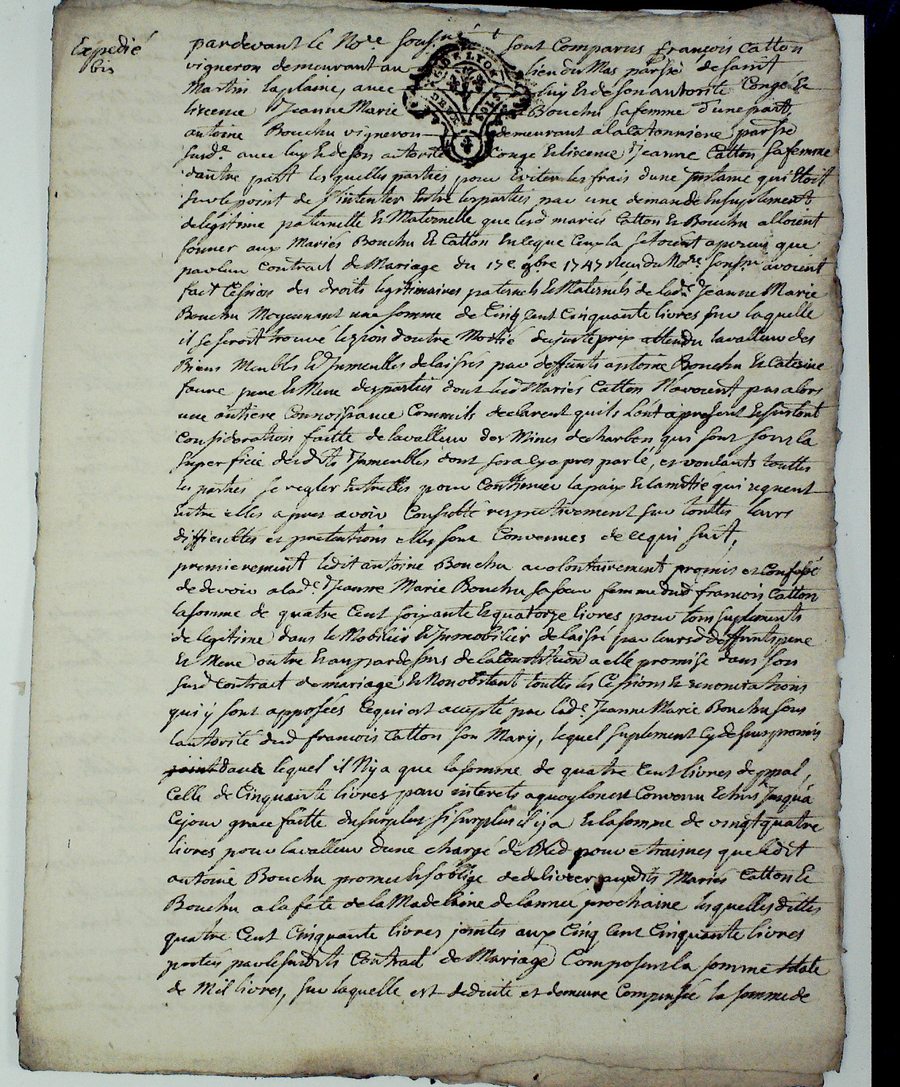 Expedié
bis
pardevant le No.re sousné sont Comparus françois Catton
vigneron demeurant au lieu du Mas parsse de saint
Martin la plaine, avec luy et de son autorité Congé et
licence Jeanne Marie Bouchu sa femme d'une part,
antoine Bouchu vigneron demeurant a la Catonniere parsse
susd.e avec luy et de son autorité Congé et licence Jeanne Catton sa femme
d'autre part lesquelles parties pour eviter les frais d'une instance qui etoit
sur le point de s'intenter entre les parties par une demande en suplement
de legitime paternelle et Maternelle que lesd mariés Catton et Bouchu alloient
former aux Mariés Bouchu et Catton en ce que Ceux la setoient apercu que
par leur Contrat de Mariage du 17e 9bre 1747 Receu du No.re sousné avoient
fait Cession des droits legitimaires paternels et Maternels de lad.e Jeanne Marie
Bouchu Moyennant une somme de Cinq Cent Cinquante livres sur laquelle
il se seroit trouvé lezion d'outre Moitié du juste prix attendu la valleur des
Biens Meubles et Immeubles delaissés par deffunts antoine Bouchu et Caterine
faure pere et Mere des parties dont lesd Mariés Catton N'avoient pas alors
une entiere Connoissance Comme ils declarent qu'ils l'ont a present et surtout
Consideration faitte de la valleur des Mines de charbon qui sont sous la
superficie desdits Immeubles dont sera cy apres parlé, et voulants touttes
les parties se regler entrelles pour Continuer la paix et lamitié qui regnent
entre elles apres avoir Consulté respectivement sur touttes leurs
difficultés et pretentions elles sont Convenues de ce qui suit,
premierement ledit antoine Bouchu a volontairement promis et Confessé
de devoir a lad.e Jeanne Marie Bouchu sa soeur femme dud francois Catton
la somme de quatre Cent soixante et quatorze livres pour tous suplements
de legitime dans le Mobilier et Immobilier delaissé par leursd deffunts pere
et Mere outre et au par dessus de la Constitution a elle promise dans son
susd Contrat de mariage et Nonobstant touttes les Cessions et renonciations
qui y sont apposées Ce qui est accepté par lad.e Jeanne Marie Bouchu sous
l'autorité dud francois Catton son Mary, lequel suplement cy dessus promis
lequel il N'y a que la somme de quatre Cent livres de ppal,
Celle de Cinquante livres pour interets a quoy l'on est Convenu Echus Jusqu'a
Ce jour grace faitte du surplus si surplus il y a et la somme de vingt quatre
livres pour la valleur d'une charge de Bled pour etraisnes que ledit
antoine Bouchu promet et s'oblige de delivrer auxdits Mariés Catton et
Bouchu a la fete de la Madeleine de lannée prochaine lesquelles dittes
quatre Cent Cinquante livres jointes aux Cinq Cent Cinquante livres
portées par lesusdits Contrat de Mariage Composent la somme totale
de Mil livres, sur laquelle est deduite et demeure Compensée la somme de